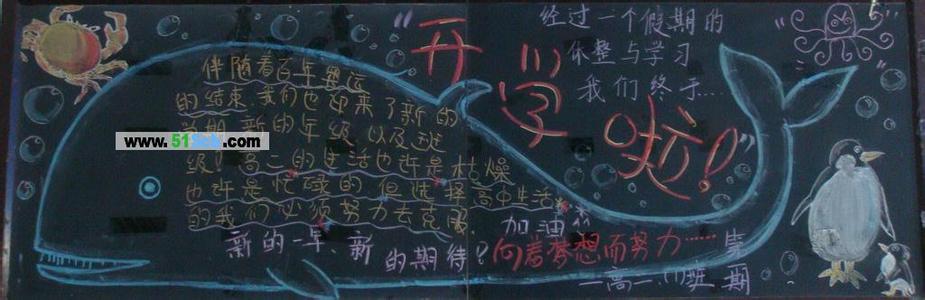 经过一个假期的
休整与学习
我们终于...
“开学啦！”
伴随着百年奥运
的结束,我们也迎来了新的
学期,新的年级,以及
级！高二的生活也许是枯燥
也许是忙碌的但选择高中生活
的我们必须努力去克服
加油
新的一年,新的期待？向着梦想而努力……
第一期
高二(1)班